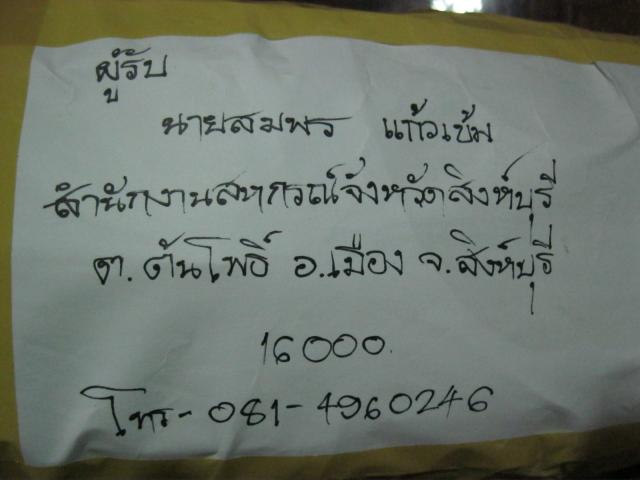 ผู้รับ
นายสมพร แก้วเข้ม
สำนักงานสหกรณ์จังหวัดสิงห์บุรี
ต.ต้นโพธิ์ อ.เมือง จ.สิงห์บุรี
16000.
โทร- 081-4960246